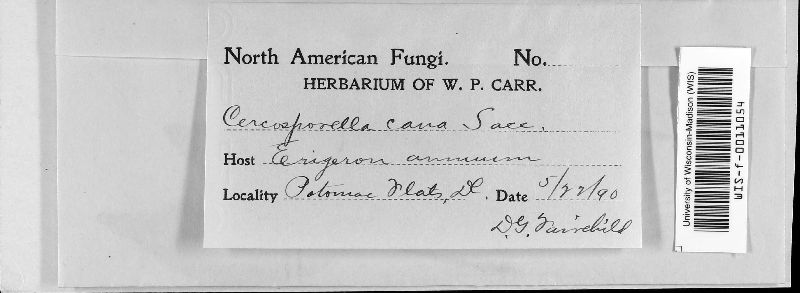 North American Fungi. No.
HERBARIUM OF W. P. CARR.
Cercosporella cana Sacc.
Host Erigeron annuum
Locality Potomac Flats, DC. Date 5/22/90
D.G. Fairchild
University of Wisconsin-Madison (WIS)
WIS-f-0011054